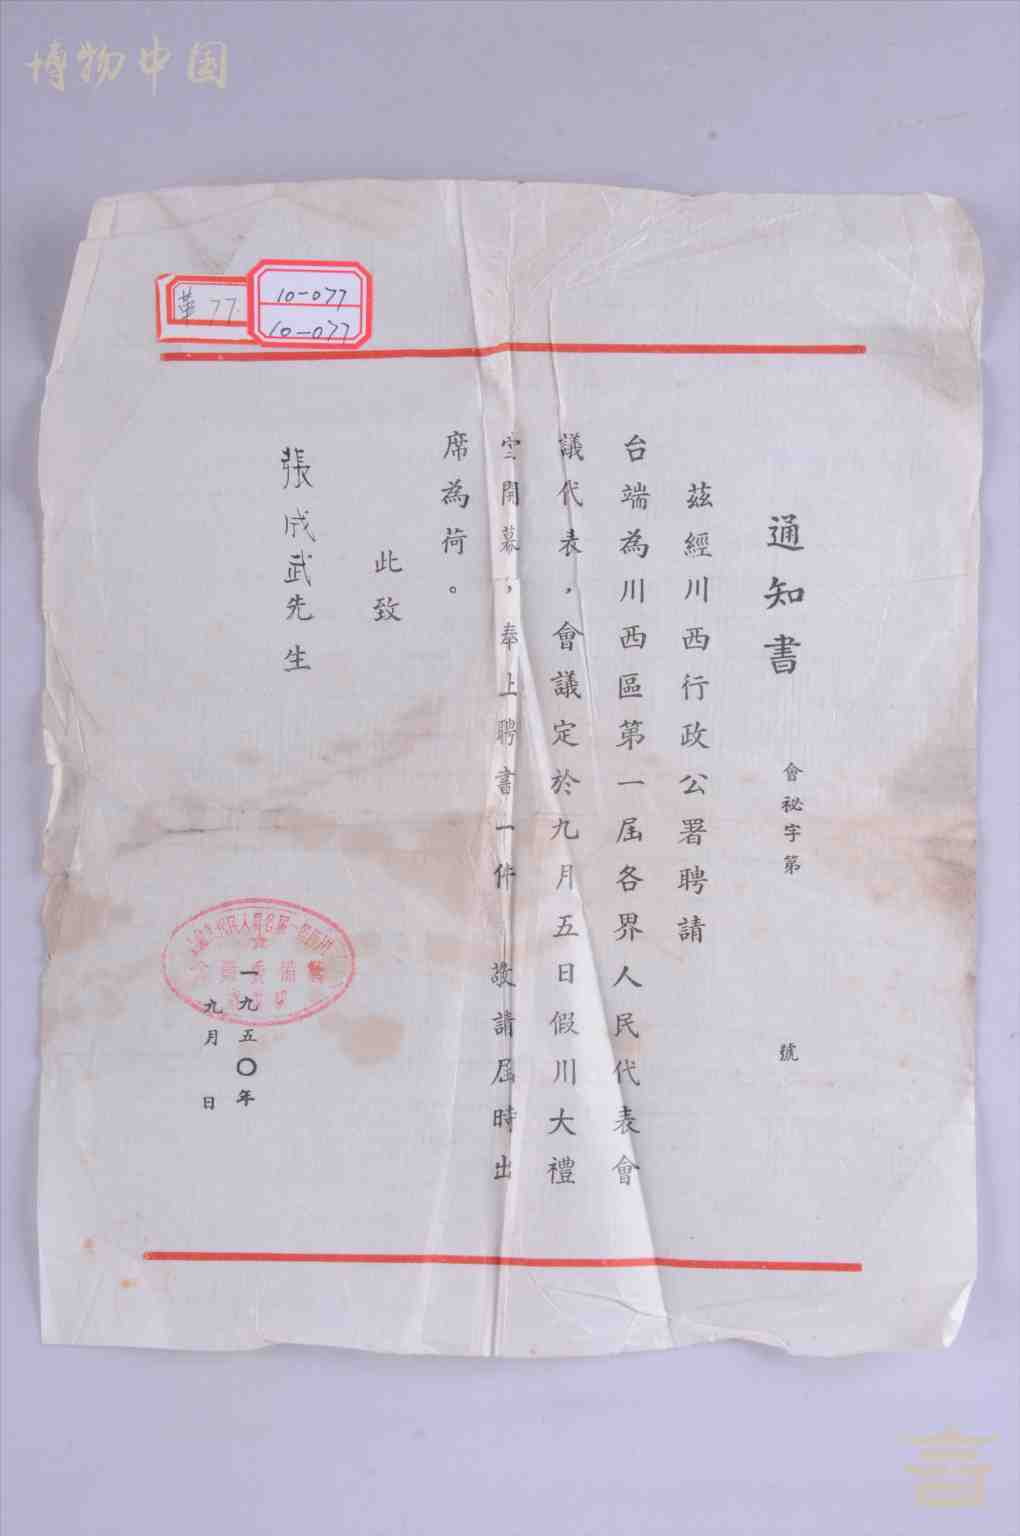 博物中国
革77
10-077
10-077
通知書
會祕字第 號
茲經川西行政公署聘請
台端為川西區第一屆各界人民代表會
議代表，會議定於九月五日假川大禮
堂開幕，奉上聘書一件 敬請屆時出
席為荷。
此致
張成武先生
一九五〇年
九月 日